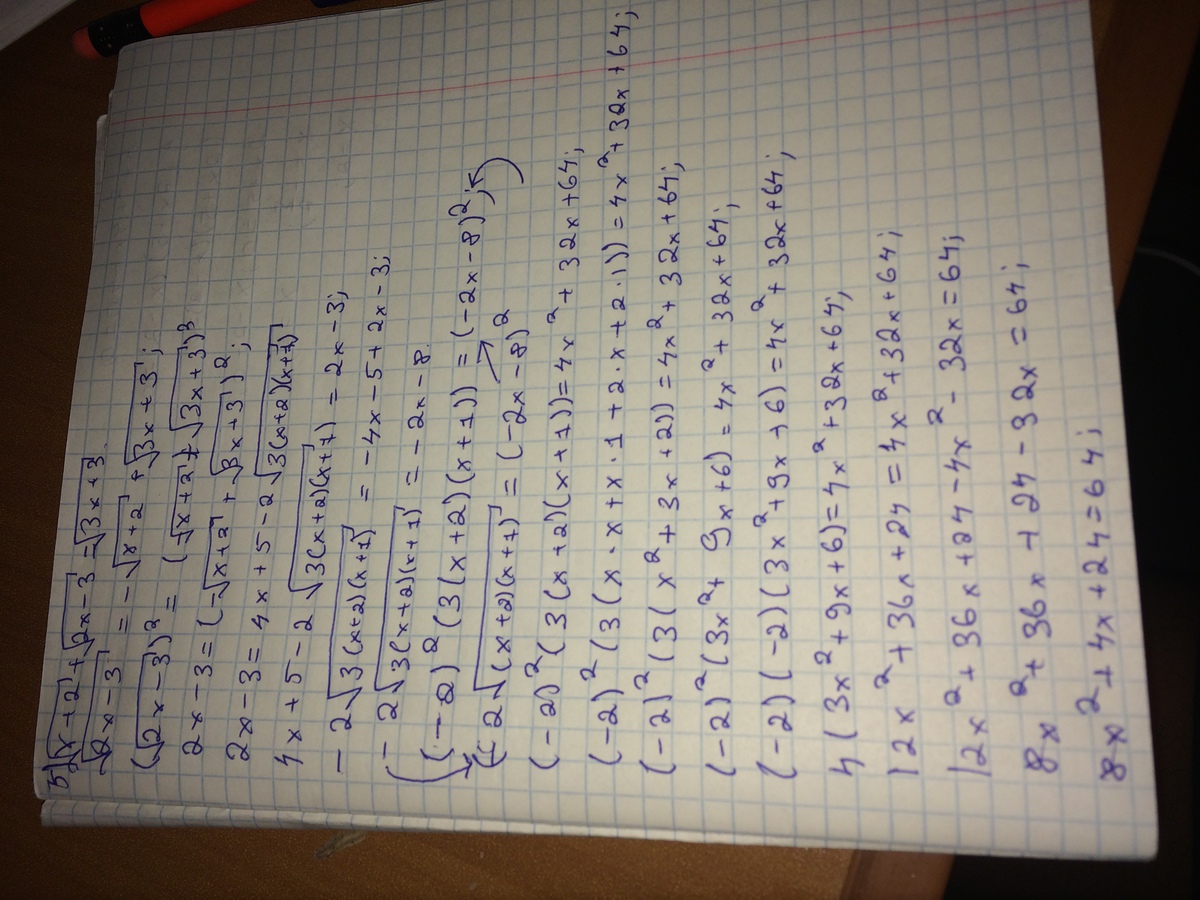 5) √x+2 + √2x-3 = √3x+3.
√2x-3 = -√x+2 + √3x+3;
(√2x-3)² = (-√x+2 + √3x+3)²
2x-3 = (-√x+2 + √3x+3)²;
2x-3 = 4x+5-2√3(x+2)(x+1)
4x+5-2√3(x+2)(x+1) = 2x-3;
-2√3(x+2)(x+1) = -4x-5+2x-3;
-2√3(x+2)(x+1) = -2x-8.
(-2)²(3(x+2)(x+1)) = (-2x-8)²;
(-2√(x+2)(x+1) = (-2x-8)²
(-2)²(3(x+2)(x+1)) = 4x²+32x+64;
(-2)²(3(x·x+x·1+2·x+2·1)) = 4x²+32x+64;
(-2)²(3(x²+3x+2)) = 4x²+32x+64;
(-2)²(3x²+9x+6) = 4x²+32x+64;
(-2)(-2)(3x²+9x+6) = 4x²+32x+64;
4(3x²+9x+6) = 4x²+32x+64;
12x²+36x+24 = 4x²+32x+64;
12x²+36x+24-4x²-32x = 64;
8x²+36x+24-32x = 64;
8x²+4x+24 = 64;